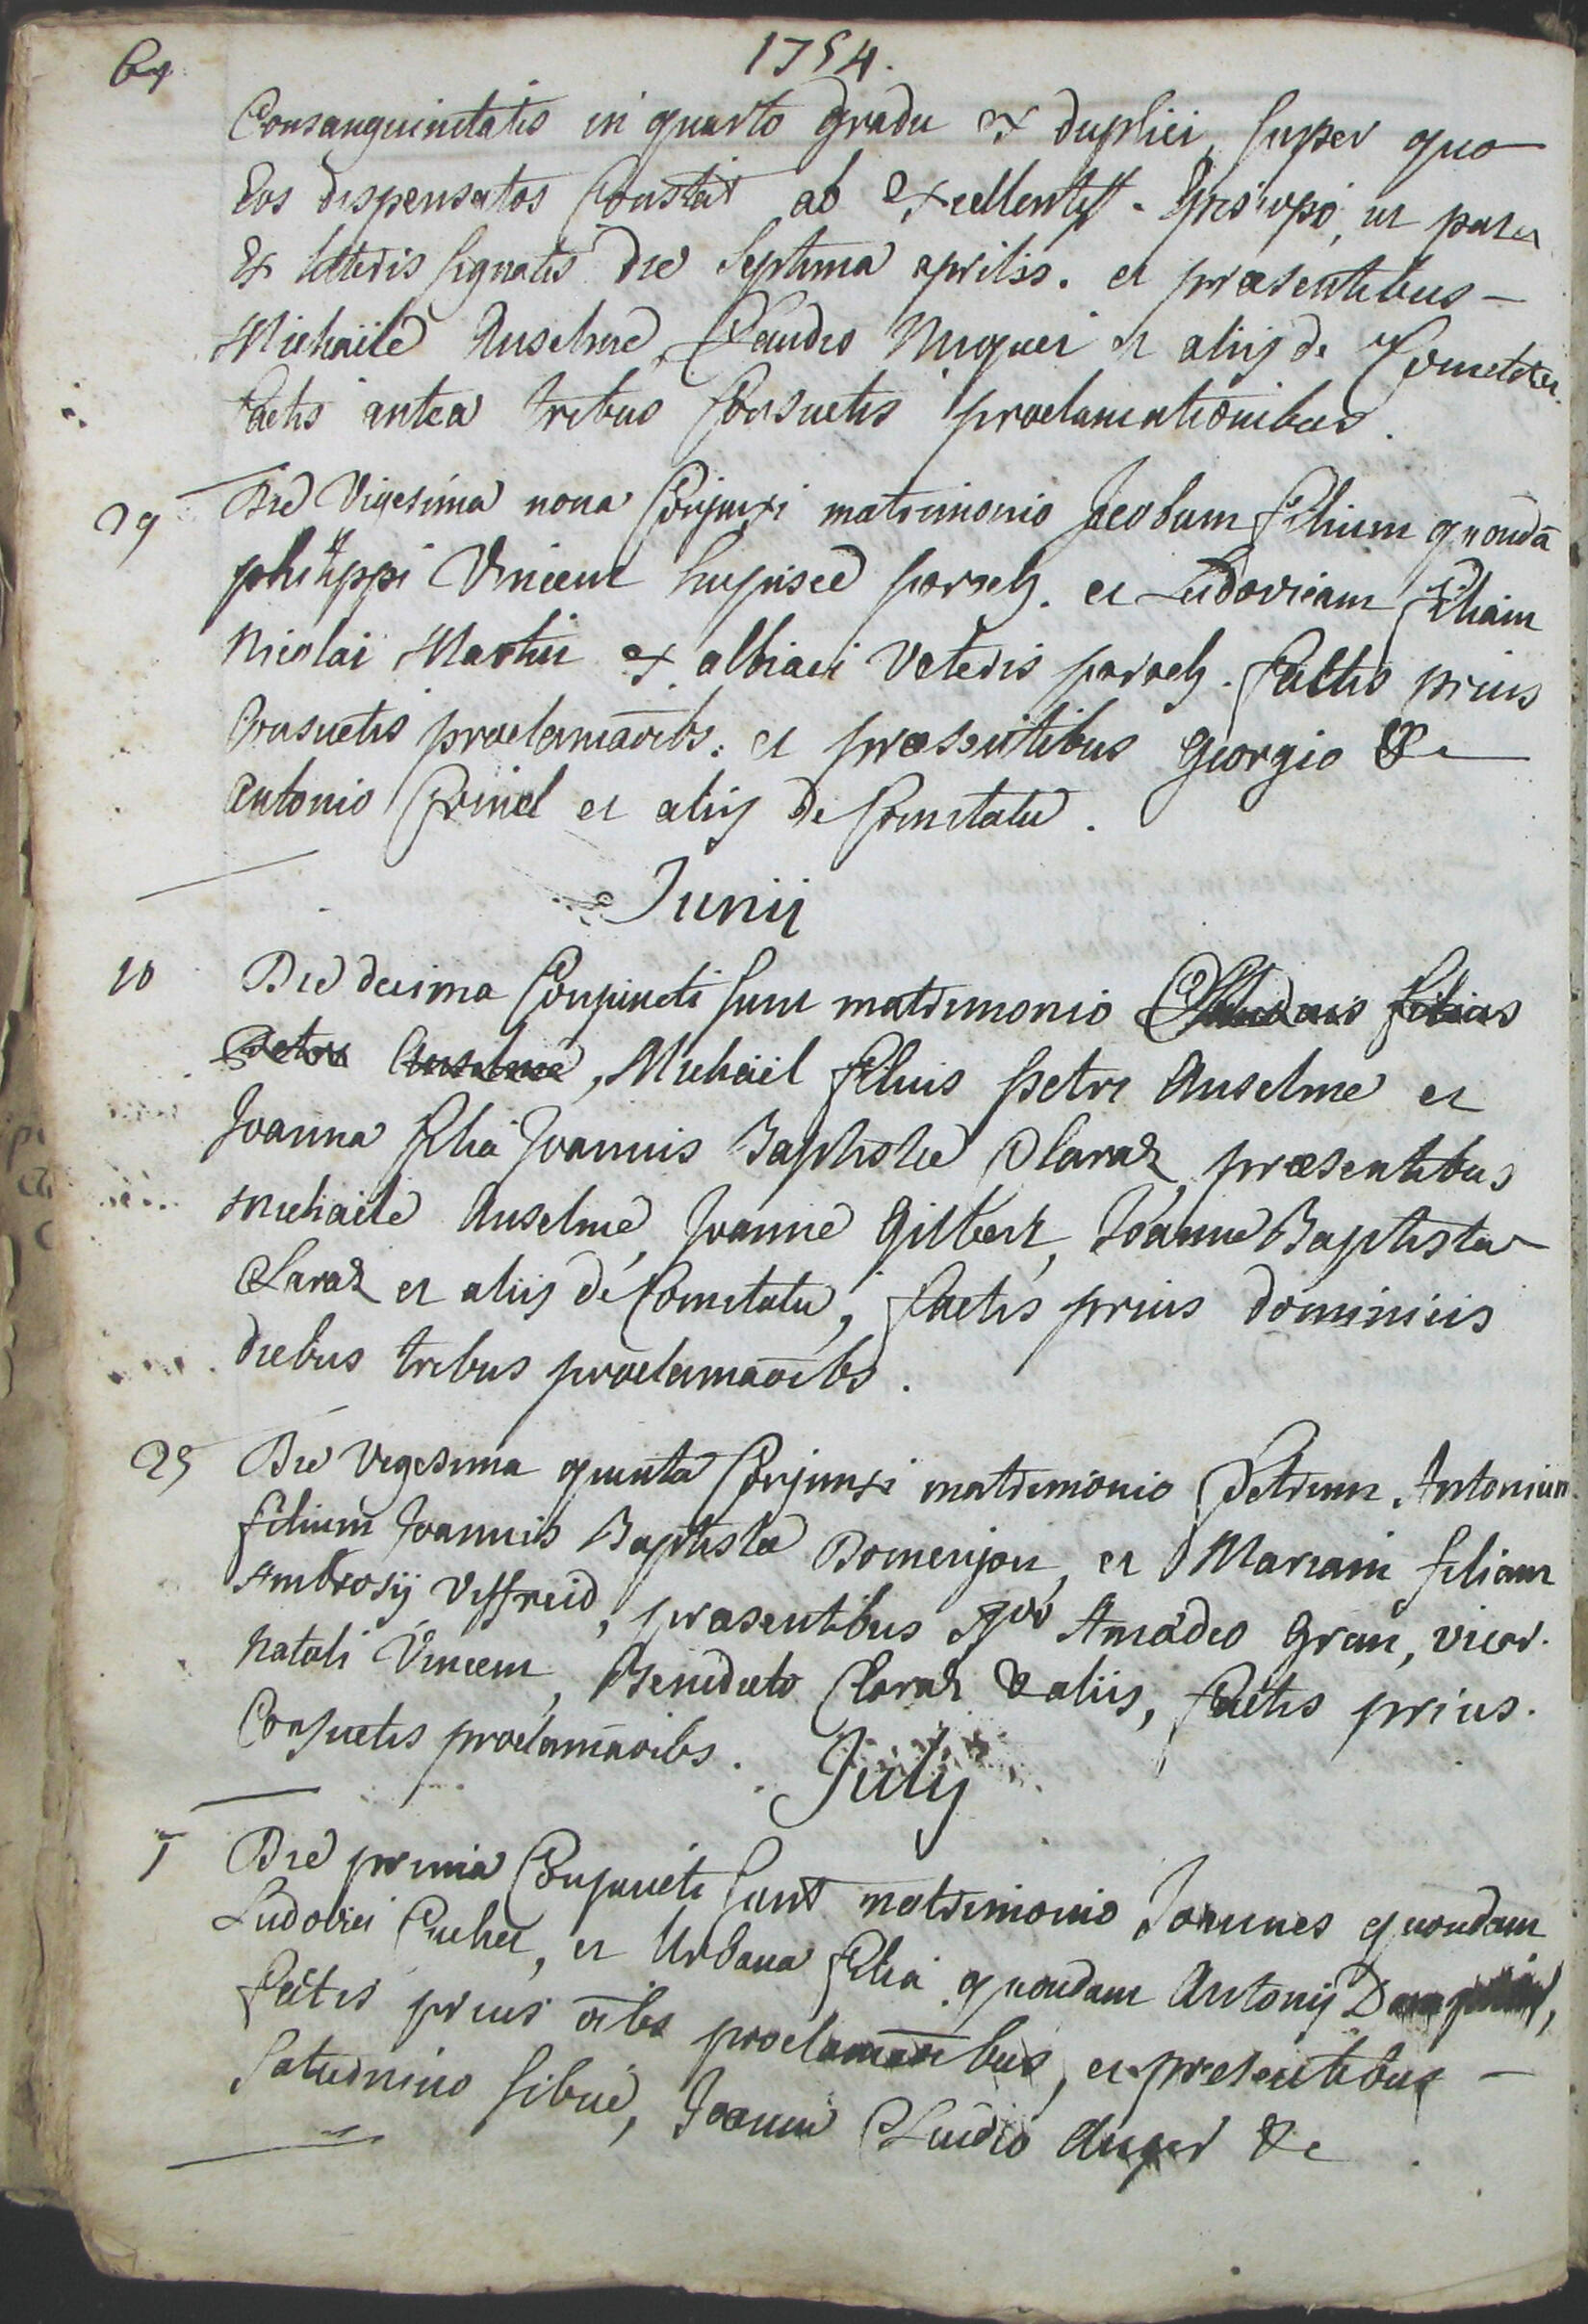 1754.
Consanguinitatis in quarto gradu ex duplici, super quo
Eos dispensatos Constat ab Excellentiss. Episcopo, ut patet
Ex litteris signatis die septima aprilis. et praesentibus –
Michaële Anselme, Claudio Miquei et aliis de Comitatu.
factis antea tribus Consuetis proclamationibus.
29 Die Vigesima nona Conjunxi matrimonio Jacobum filium quondā
philippi Vincent hujusce paroch. et Ludovicam filiam
Nicolai Martin ex albiaci Veteris paroch. factis prius
Consuetis proclamāoibs. et praesentibus Georgio &
antonio et aliis de Comitatu.
Junij
10 Die decima Conjuncti sunt matrimonio Claudius filius
Petri Anselme, Michaël filius petri Anselme et
Joanna filia Joannis Baptistae Claraz, praesentibus
Michaële Anselme, Joanne Gilbert, Joanne Baptista
Claraz et aliis de Comitatu; factis prius dominicis
diebus tribus proclamāoibs.
25 Die vigesima quinta Conjunxi matrimonio Petrum Antonium
filium Joannis Baptistae Domenjou, et Mariam filiam
Ambrosij Viffreid, praesentibus Amadeo Gran, vicar.
Natali Vincent, Benedicto Claraz & aliis, factis prius.
Consuetis proclamāoibs.
Julij
1 Die prima Conjuncti sunt matrimonio Joannes quondam
Ludovici Cuchet, et Urbana filia quondam Antonij
factis prius oībs proclamāoibus, et presentibus –
Saturnino sibué, Joanne Claudio Auger &c